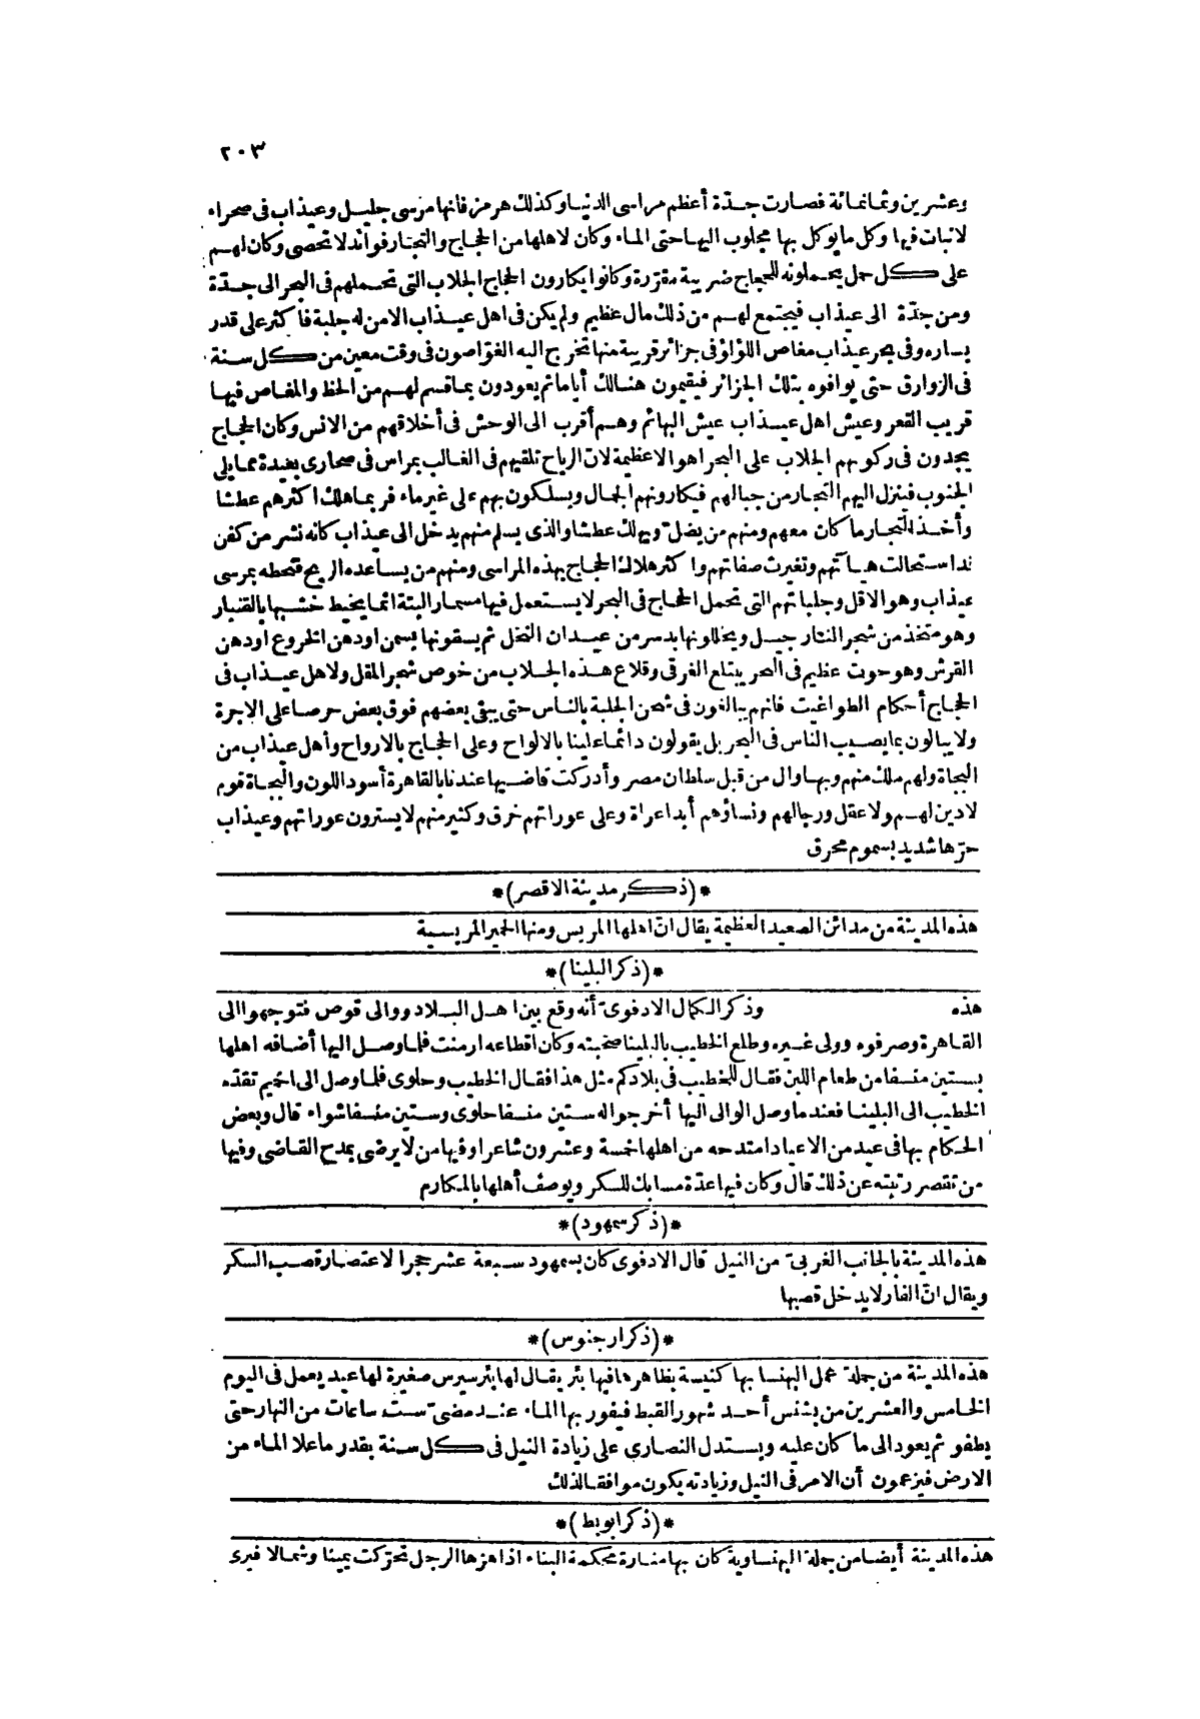 ٢٠٣
وعشرين وثمانمائة فصارت جدّة أعظم مراسى الدنيا وكذلك هرمز فانها مرسى جليل وعيذاب فى صحراء
لا نبات فيها وكل ما يوكل بها مجلوب اليها حتى الماء وكان لاهلها من الحجاج والتجار فوائد لا تحصى وكان لهم
على كل حمل يحملونه للحجاج ضريبة مقرّرة وكانوا يكارون الحجاج الجلاب التى تحملهم فى البحر الى جدّة
ومن جدّة الى عيذاب فيجتمع لهم من ذلك مال عظيم ولم يكن فى اهل عيذاب الامن له جلبة فاكثر على قدر
يساره وفى بحر عيذاب مغاص اللؤلؤ فى جزائر قريبة منها تخرج اليه الغوّاصون فى وقت معين من كل سنة
فى الزوارق حتى يوافوه بتلك الجزائر فيقيمون هنالك أياما ثم يعودون بما قسم لهم من الحظ والمغاص فيها
قريب القعر وعيش اهل عيذاب عيش البهائم وهم أقرب الى الوحش فى أخلاقهم من الانس وكان الحجاج
يجدون فى ركوبهم الجلاب على البحر اهوالا عظيمة لان الرياح تلقيهم فى الغالب بمراس فى صحارى بعيدة مما يلى
الجنوب فينزل اليهم التجار من جبالهم فيكارونهم الجمال ويسلكون بهم على غير ماء فربما هلك اكثرهم عطشا
وأخذ التجار ما كان معهم ومنهم من يضلّ ويهلك عطشا والذى يسلم منهم يدخل الى عيذاب كانه نشر من كفن
قد استحالت هيآتهم وتغيرت صفاتهم واكثر هلاك الحجاج بهذه المراسى ومنهم من يساعده الريح فتحطه بمرسى
عيذاب وهو الاقل وجلباتهم التى تحمل الحجاج فى البحر لا يستعمل فيها مسمار البتة انما يخيط خشبها بالقنبار
وهو متخذ من شجر النارجيل ويخللونها بدسر من عيدان النخل ثم يسقونها بسمن اودهن الخروع اودهن
القرش وهو حوت عظيم فى البحر يبتلع الغرقى وقلاع هذه الجلاب من خوص شجر المقل ولاهل عيذاب فى
الحجاج أحكام الطواغيت فانهم يبالغون فى شحن الجلبة بالناس حتى يبقى بعضهم فوق بعض حرصا على الاجرة
ولا يبالون بما يصيب الناس فى البحر بل يقولون دائما علينا بالالواح وعلى الحجاج بالارواح وأهل عيذاب من
البجاة ولهم ملك منهم وبها وال من قبل سلطان مصر وأدركت قاضيها عندنا بالقاهرة أسود اللون والبجاة قوم
لا دين لهم ولا عقل ورجالهم ونساؤهم أبدا عراة وعلى عوراتهم خرق وكثير منهم لا يسترون عوراتهم وعيذاب
حرّها شديد بسموم محرق
*(ذكر مدينة الاقصر)*
هذه المدينة من مدائن الصعيد العظيمة يقال انّ اهلها المريس ومنها الحمير المريسية
*(ذكر البلينا)*
هذه وذكر الكمال الادفوىّ أنه وقع بين اهل البلاد ووالى قوص فتوجهوا الى
القاهرة وصرفوه وولى غيره وطلع الخطيب بالبلينا صحبته وكان اقطاعه ارمنت فلما وصل اليها أضافه اهلها
بستين منسفا من طعام اللبن فقال للخطيب فى بلادكم مثل هذا فقال الخطيب وحلوى فلما وصل الى اخميم تقدّم
الخطيب الى البلينا فعند ما وصل الوالى اليها أخرجوا له ستين منسفا حلوى وستين منسفا شواء قال وبعض
الحكام بها فى عيد من الاعياد امتدحه من اهلها خمسة وعشرون شاعرا وفيها من لا يرضى بمدح القاضى وفيها
من تقصر رتبته عن ذلك قال وكان فيها عدّة مسابك للسكر ويوصف أهلها بالمكارم
*(ذكر سمهود)*
هذه المدينة بالجانب الغربىّ من النيل قال الادفوى كان بسمهود سبعة عشر حجرا لاعتصار قصب السكر
ويقال انّ الفار لا يدخل قصبها
*(ذكر ارجنوس)*
هذه المدينة من جملة عمل البهنسا بها كنيسة بظاهرها فيها بئر يقال لها بئر سيرس صغيرة لها عيد يعمل فى اليوم
الخامس والعشرين من بشنس أحد شهور القبط فيفور بها الماء عند مضىّ ست ساعات من النهار حتى
يطفو ثم يعود الى ما كان عليه ويستدل النصارى على زيادة النيل فى كل سنة بقدر ما علا الماء من
الارض فيزعمون أن الامر فى النيل وزيادته يكون موافقا لذلك
*(ذكر ابويط)*
هذه المدينة أيضا من جملة البهنساوية كان بها منارة محكمة البناء اذا هزها الرجل تحرّكت يمينا وشمالا فيرى